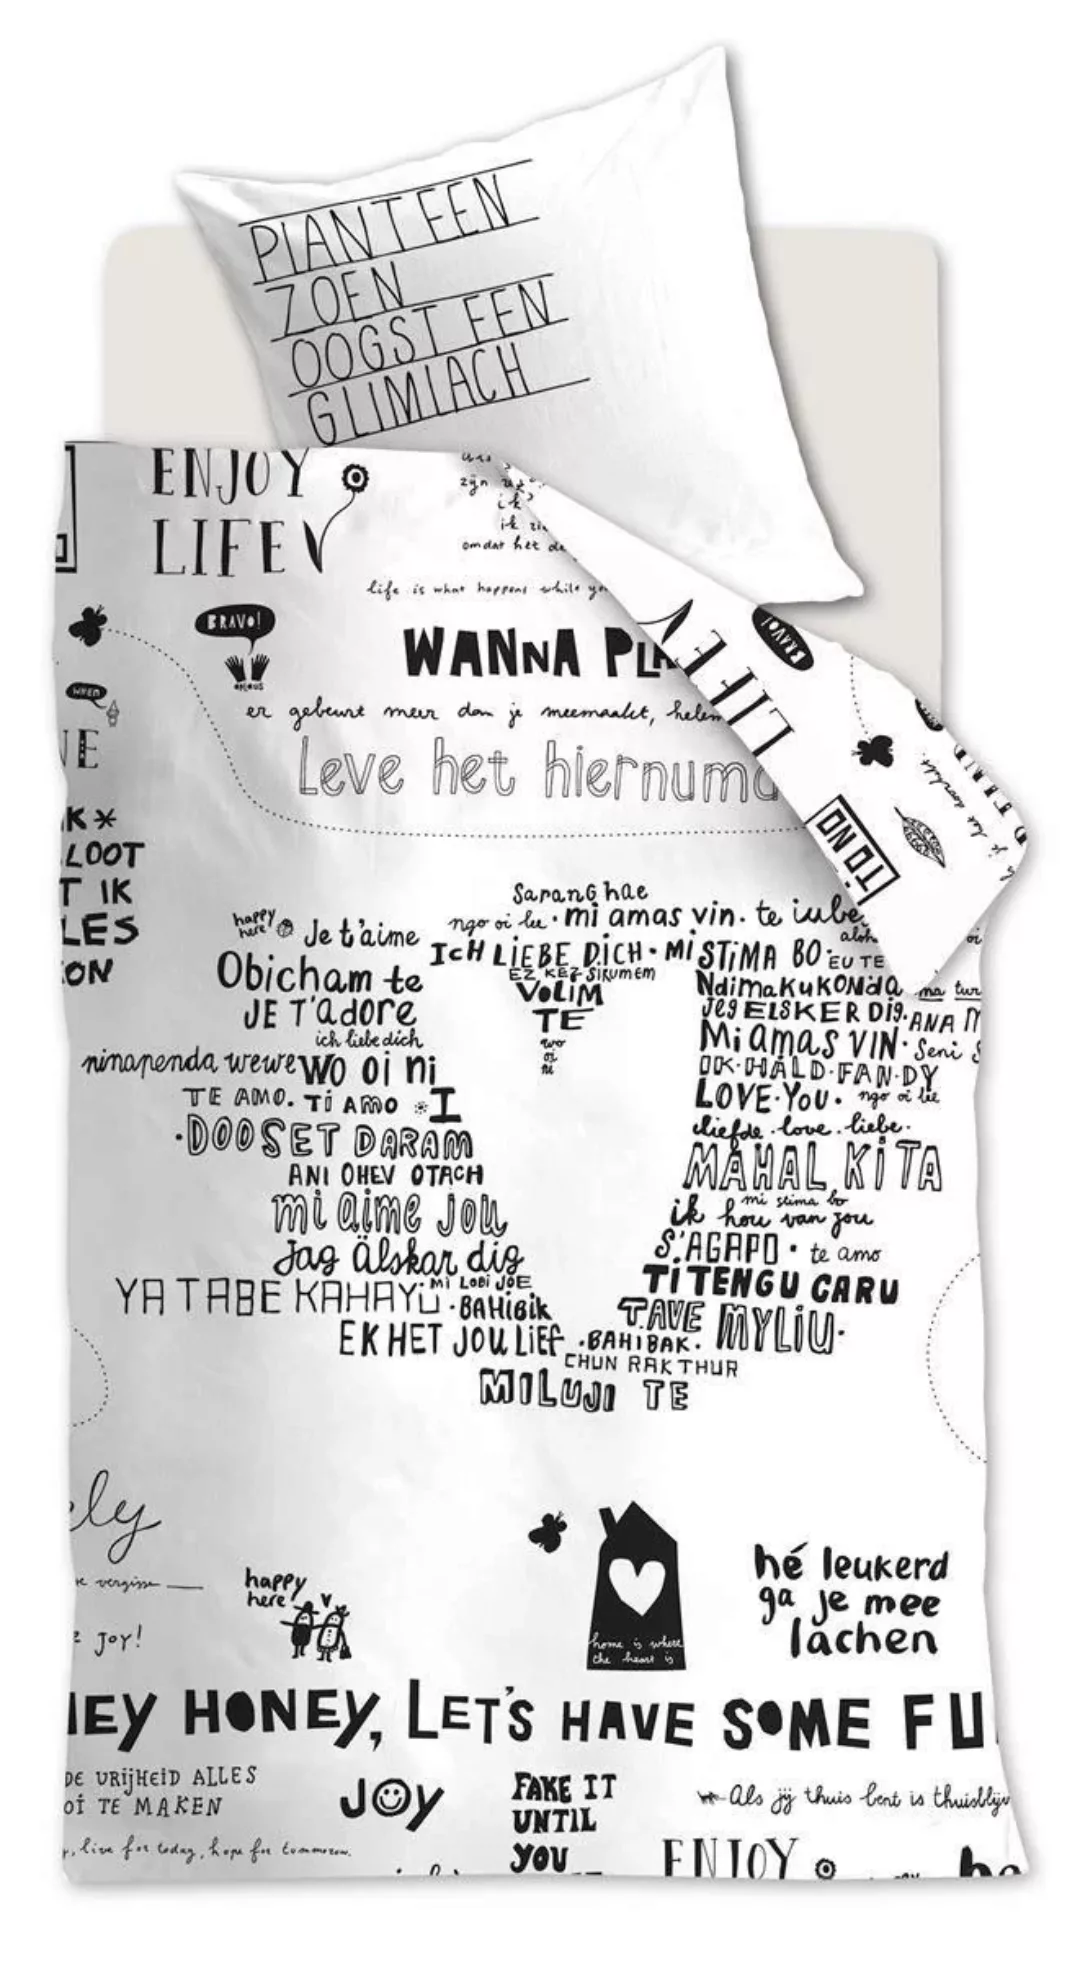 PLANT EEN
ZOEN
OOGST EEN
GLIMLACH
ENJOY
LIFE
zijn
ik
ik
omdat het
life is what happens while
BRAVO!
WANNA
WHEN
er gebeurt meer dan je meemaakt,
Leve het
LIFE
BRAVO!
TO NO
IK
Sarang hae
happy
here
Je t'aime
ngo oi lee · mi amas vin. te
ICH LIEBE DICH · Mi STIMA BO
EU TE
Obicham te
EZ KEZ SIRUMEM
Ndimakukonda
VOLIM
JE T'adore
JEG ELSKER Dig. ANA
TE
ich liebe dich
Mi amas VIN. Seni
wo
oi
ni
ninapenda wewe WO oi ni
IK·HÂLD·FAN·DY
TE AMO. Ti AMO I
LOVE·YOU. ngo oi lee
liefde · love · liebe ·
·DOOSET DARAM
MAHAL KITA
ANI OHEV OTACH
mi stima bo
mi aime jou
ik hou van jou
Jag Älskar dig
S'AGAPO · te amo
MI LOBI JOE
TITENGU CARU
YA TABE KAHAYU · BAHIBIK
TAVE MYLIU·
EK HET JOU LIEF · BAHIBAK.
CHUN RAK THUR
MILUJI TE
JOY!
happy
here
home is where
the heart is
hé leukerd
ga je mee
lachen
HEY HONEY, LET'S HAVE SOME
DE VRIJHEID ALLES
TE MAKEN
JOY
FAKE IT
UNTIL
YOU
Als jij thuis bent is
live for today, hope for tommorow.
ENJOY